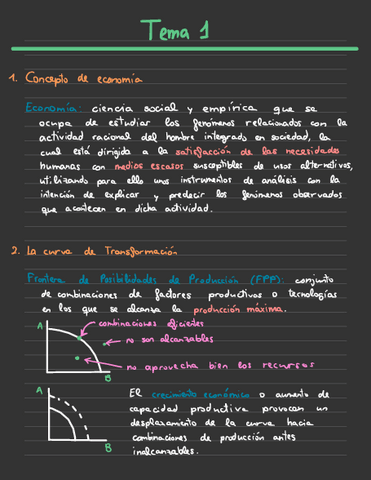 Tema 1
1. Concepto de economía
Economía: ciencia social y empírica que se
ocupa de estudiar los fenómenos relacionados con la
actividad racional del hombre integrado en sociedad, la
cual está dirigida a la satisfacción de las necesidades
humanas con medios escasos susceptibles de usos alternativos,
utilizando para ello unos instrumentos de análisis con la
intención de explicar y predecir los fenómenos observados
que acontecen en dicha actividad.
2. La curva de Transformación
Frontera de Posibilidades de Producción (FPP): conjunto
de combinaciones de factores productivos o tecnologías
en los que se alcanza la producción máxima.
A
combinaciones eficientes
no son alcanzables
no aprovecha bien los recursos
B
A
B
El crecimiento económico o aumento de
capacidad productiva provocan un
desplazamiento de la curva hacia
combinaciones de producción antes
inalcanzables.